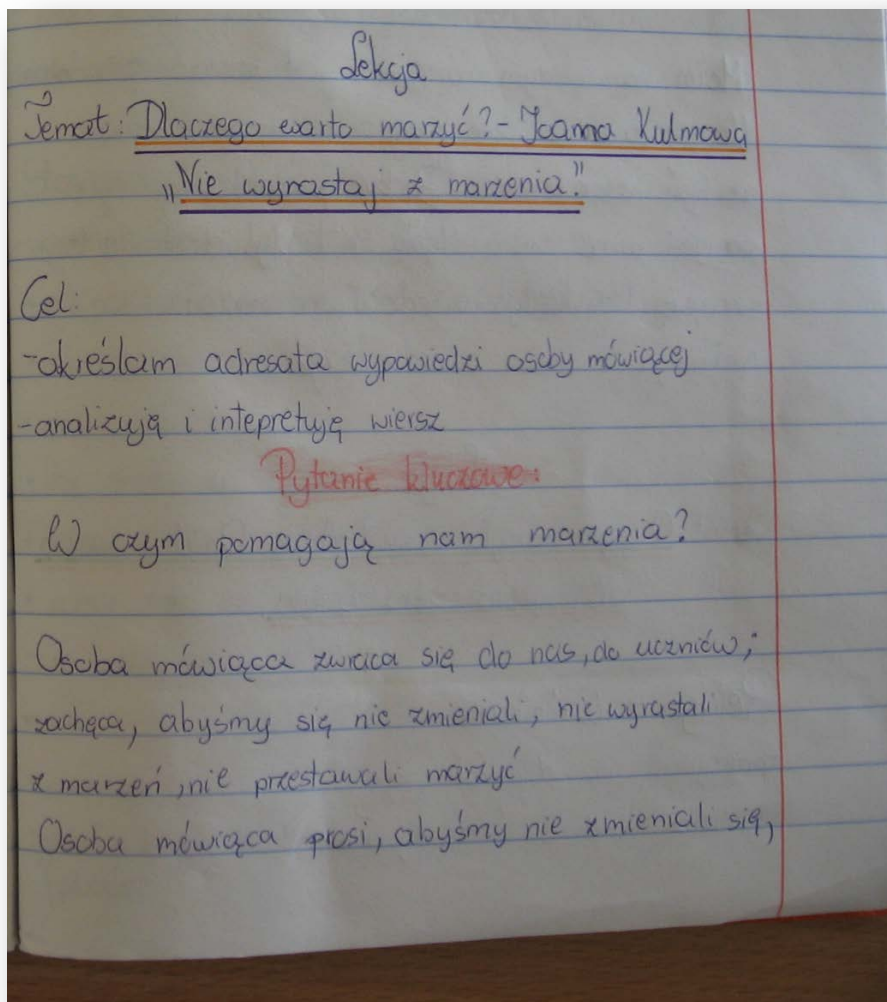 Lekcja
Temat: Dlaczego warto marzyć? - Joanna Kulmowa
„Nie wyrastaj z marzenia."
Cel:
-określam adresata wypowiedzi osoby mówiącej
-analizują i intepretuję wiersz
Pytanie kluczowe:
W czym pomagają nam marzenia?
Osoba mówiąca zwraca się do nas, do uczniów;
zachęca, abyśmy się nie zmieniali, nie wyrastali
z marzeń, nie przestawali marzyć
Osoba mówiąca prosi, abyśmy nie zmieniali się,